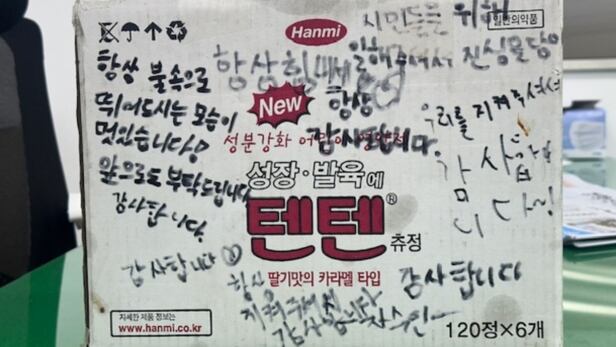 Hanmi
일반의약품
시민들을 위해
항상 힘내세
일해주셔서 진심을 담아
항상
감사합니다.
항상 불속으로
뛰어드시는 모습이
멋있습니다!
앞으로도 부탁드립니다
감사합니다.
우리를 지켜주셔서
감사합
니다~!
New
성분강화 어린이 영양제
성장·발육에
텐텐®
츄정
딸기맛의 카라멜 타입
감사합니다
항상
지켜주셔서
감사합니다
감사합니다
자세한 제품 정보는
www.hanmi.co.kr
120정×6개